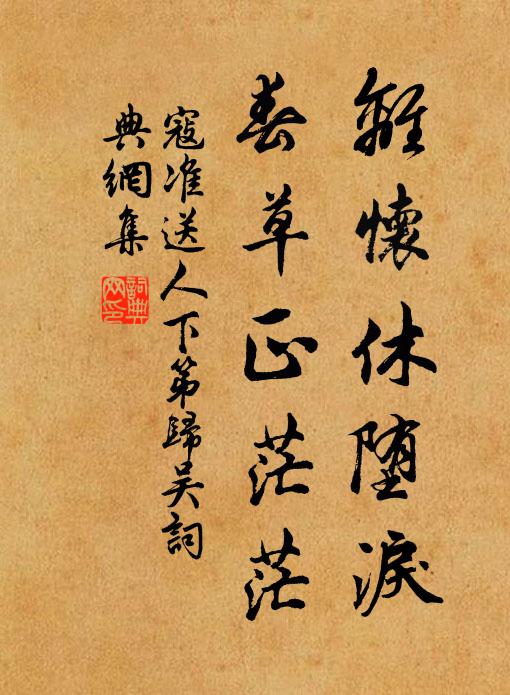 離懷休堕淚
春草正茫茫
寇准送人下第歸吴詞
典網集
詞典網印